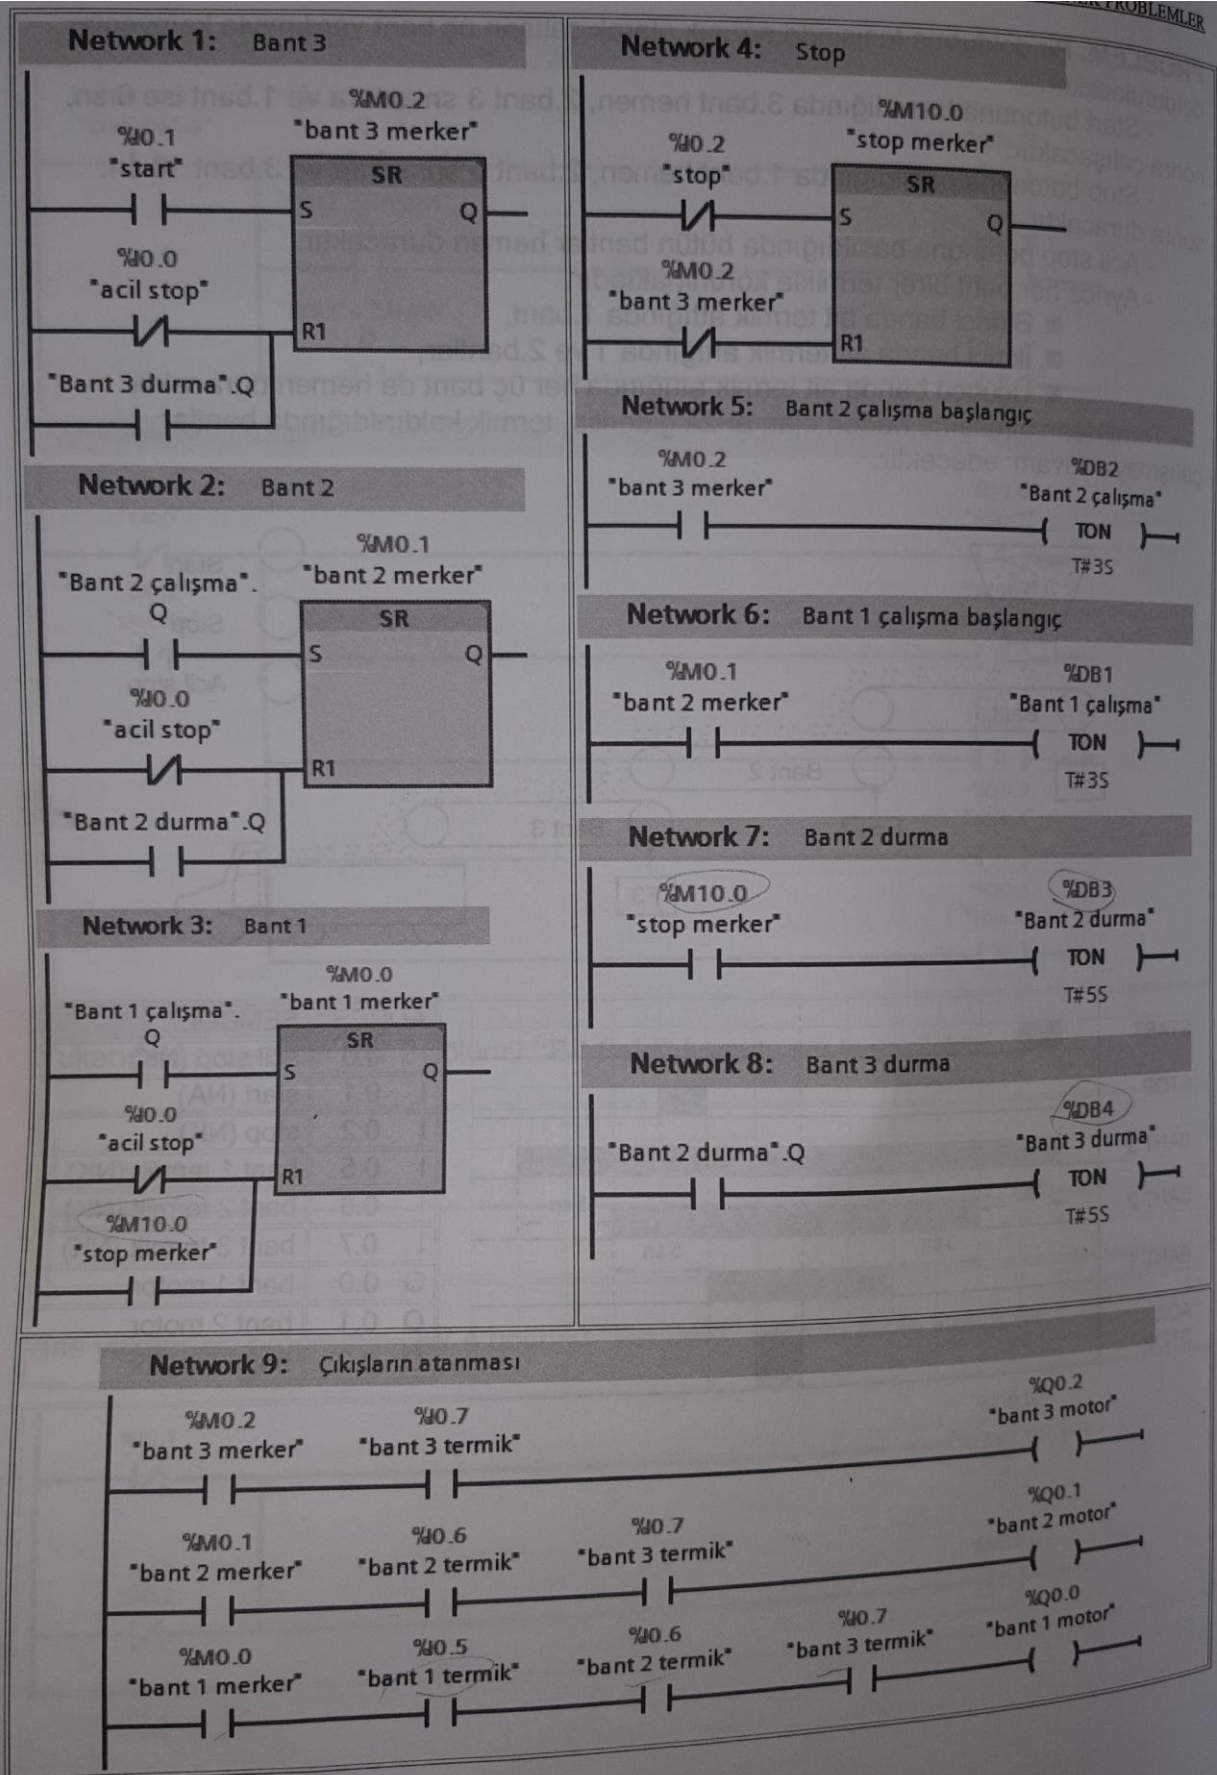 PROBLEMLER
Network 1: Bant 3
%M0.2
"bant 3 merker"
%I0.1
"start"
SR
S
Q
%I0.0
"acil stop"
R1
"Bant 3 durma".Q
Network 2: Bant 2
%M0.1
"bant 2 merker"
"Bant 2 çalışma".
Q
SR
S
Q
%I0.0
"acil stop"
R1
"Bant 2 durma".Q
Network 3: Bant 1
%M0.0
"bant 1 merker"
"Bant 1 çalışma".
Q
SR
S
Q
%I0.0
"acil stop"
R1
%M10.0
"stop merker"
Network 4: Stop
%M10.0
"stop merker"
%I0.2
"stop"
SR
S
Q
%M0.2
"bant 3 merker"
R1
Network 5: Bant 2 çalışma başlangıç
%M0.2
"bant 3 merker"
%DB2
"Bant 2 çalışma"
TON
T#3S
Network 6: Bant 1 çalışma başlangıç
%M0.1
"bant 2 merker"
%DB1
"Bant 1 çalışma"
TON
T#3S
Network 7: Bant 2 durma
%M10.0
"stop merker"
%DB3
"Bant 2 durma"
TON
T#5S
Network 8: Bant 3 durma
"Bant 2 durma".Q
%DB4
"Bant 3 durma"
TON
T#5S
Network 9: Çıkışların atanması
%M0.2 %I0.7 %Q0.2
"bant 3 merker" "bant 3 termik" "bant 3 motor"
%M0.1 %I0.6 %I0.7 %Q0.1
"bant 2 merker" "bant 2 termik" "bant 3 termik" "bant 2 motor"
%M0.0 %I0.5 %I0.6 %I0.7 %Q0.0
"bant 1 merker" "bant 1 termik" "bant 2 termik" "bant 3 termik" "bant 1 motor"